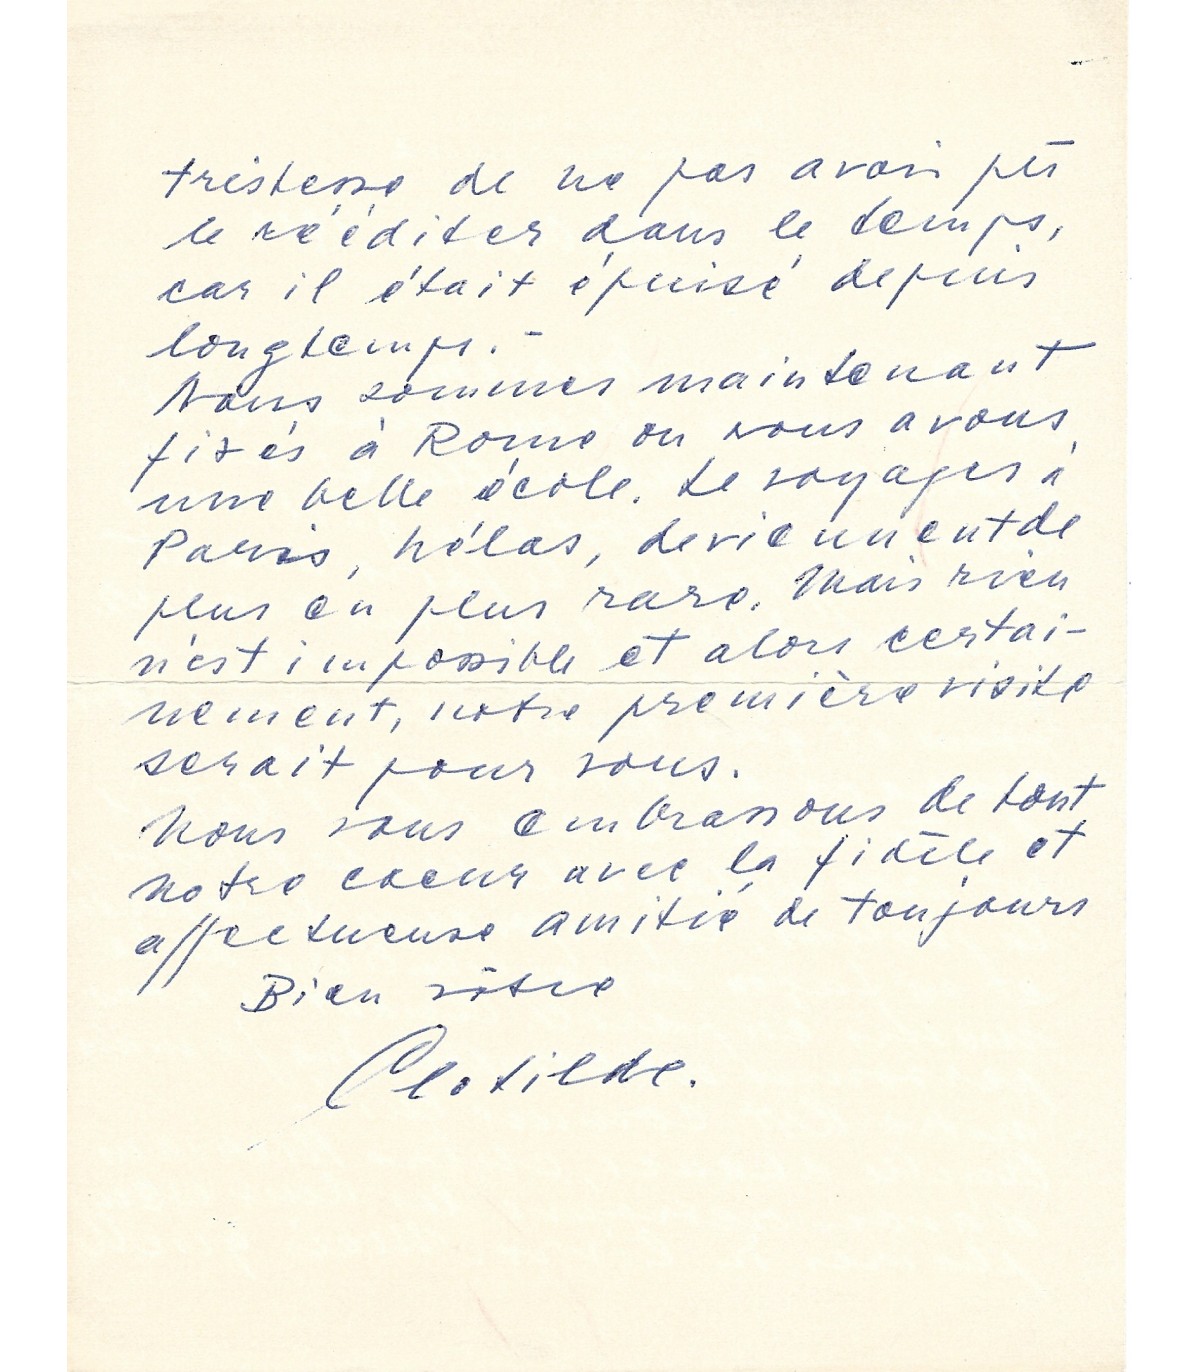 tristesse de ne pas avoir pû
le rééditer dans le temps,
car il était épuisé depuis
longtemps. -
Nous sommes maintenant
fixés à Rome ou nous avons
une belle école. Le voyages à
Paris, hélas, deviennent de
plus en plus rare. Mais rien
n'est impossible et alors certai-
nement, notre première visite
serait pour vous.
Nous vous embrassons de tout
notre coeur avec la fidèle et
affectueuse amitié de toujours
Bien vôtre
Clotilde.